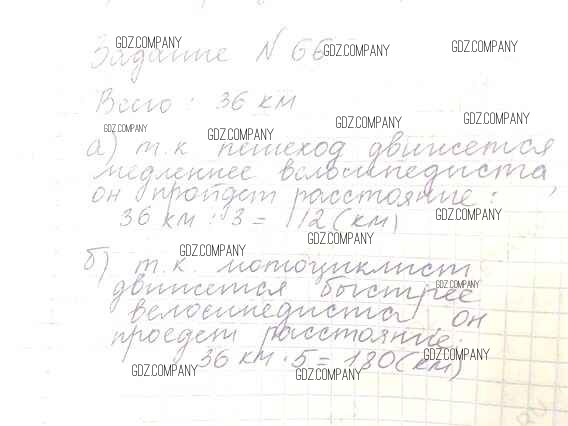 GDZ.COMPANY
Задание № 66
GDZ.COMPANY
GDZ.COMPANY
Всего : 36 км
GDZ.COMPANY
GDZ.COMPANY
GDZ.COMPANY
GDZ.COMPANY
а) т.к пешеход движется
медленнее велосипедиста,
он пройдет расстояние :
GDZ.COMPANY
36 км : 3 = 12 (км)
GDZ.COMPANY
GDZ.COMPANY
б) т.к. мотоциклист
движется быстрее
GDZ.COMPANY
велосипедиста он
проедет расстояние:
36 км · 5 = 180 (км)
GDZ.COMPANY
GDZ.COMPANY
GDZ.COMPANY